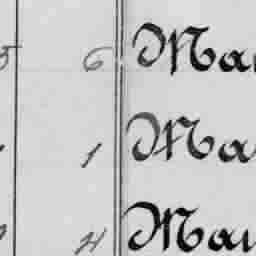 5 6 Ma
1 Ma
4 Mau